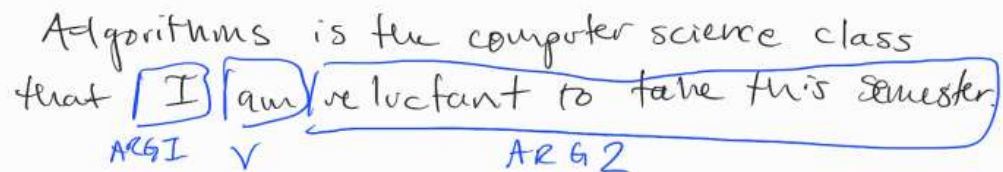 Algorithms is the computer science class
that I am reluctant to take this semester.
ARG1 V ARG2